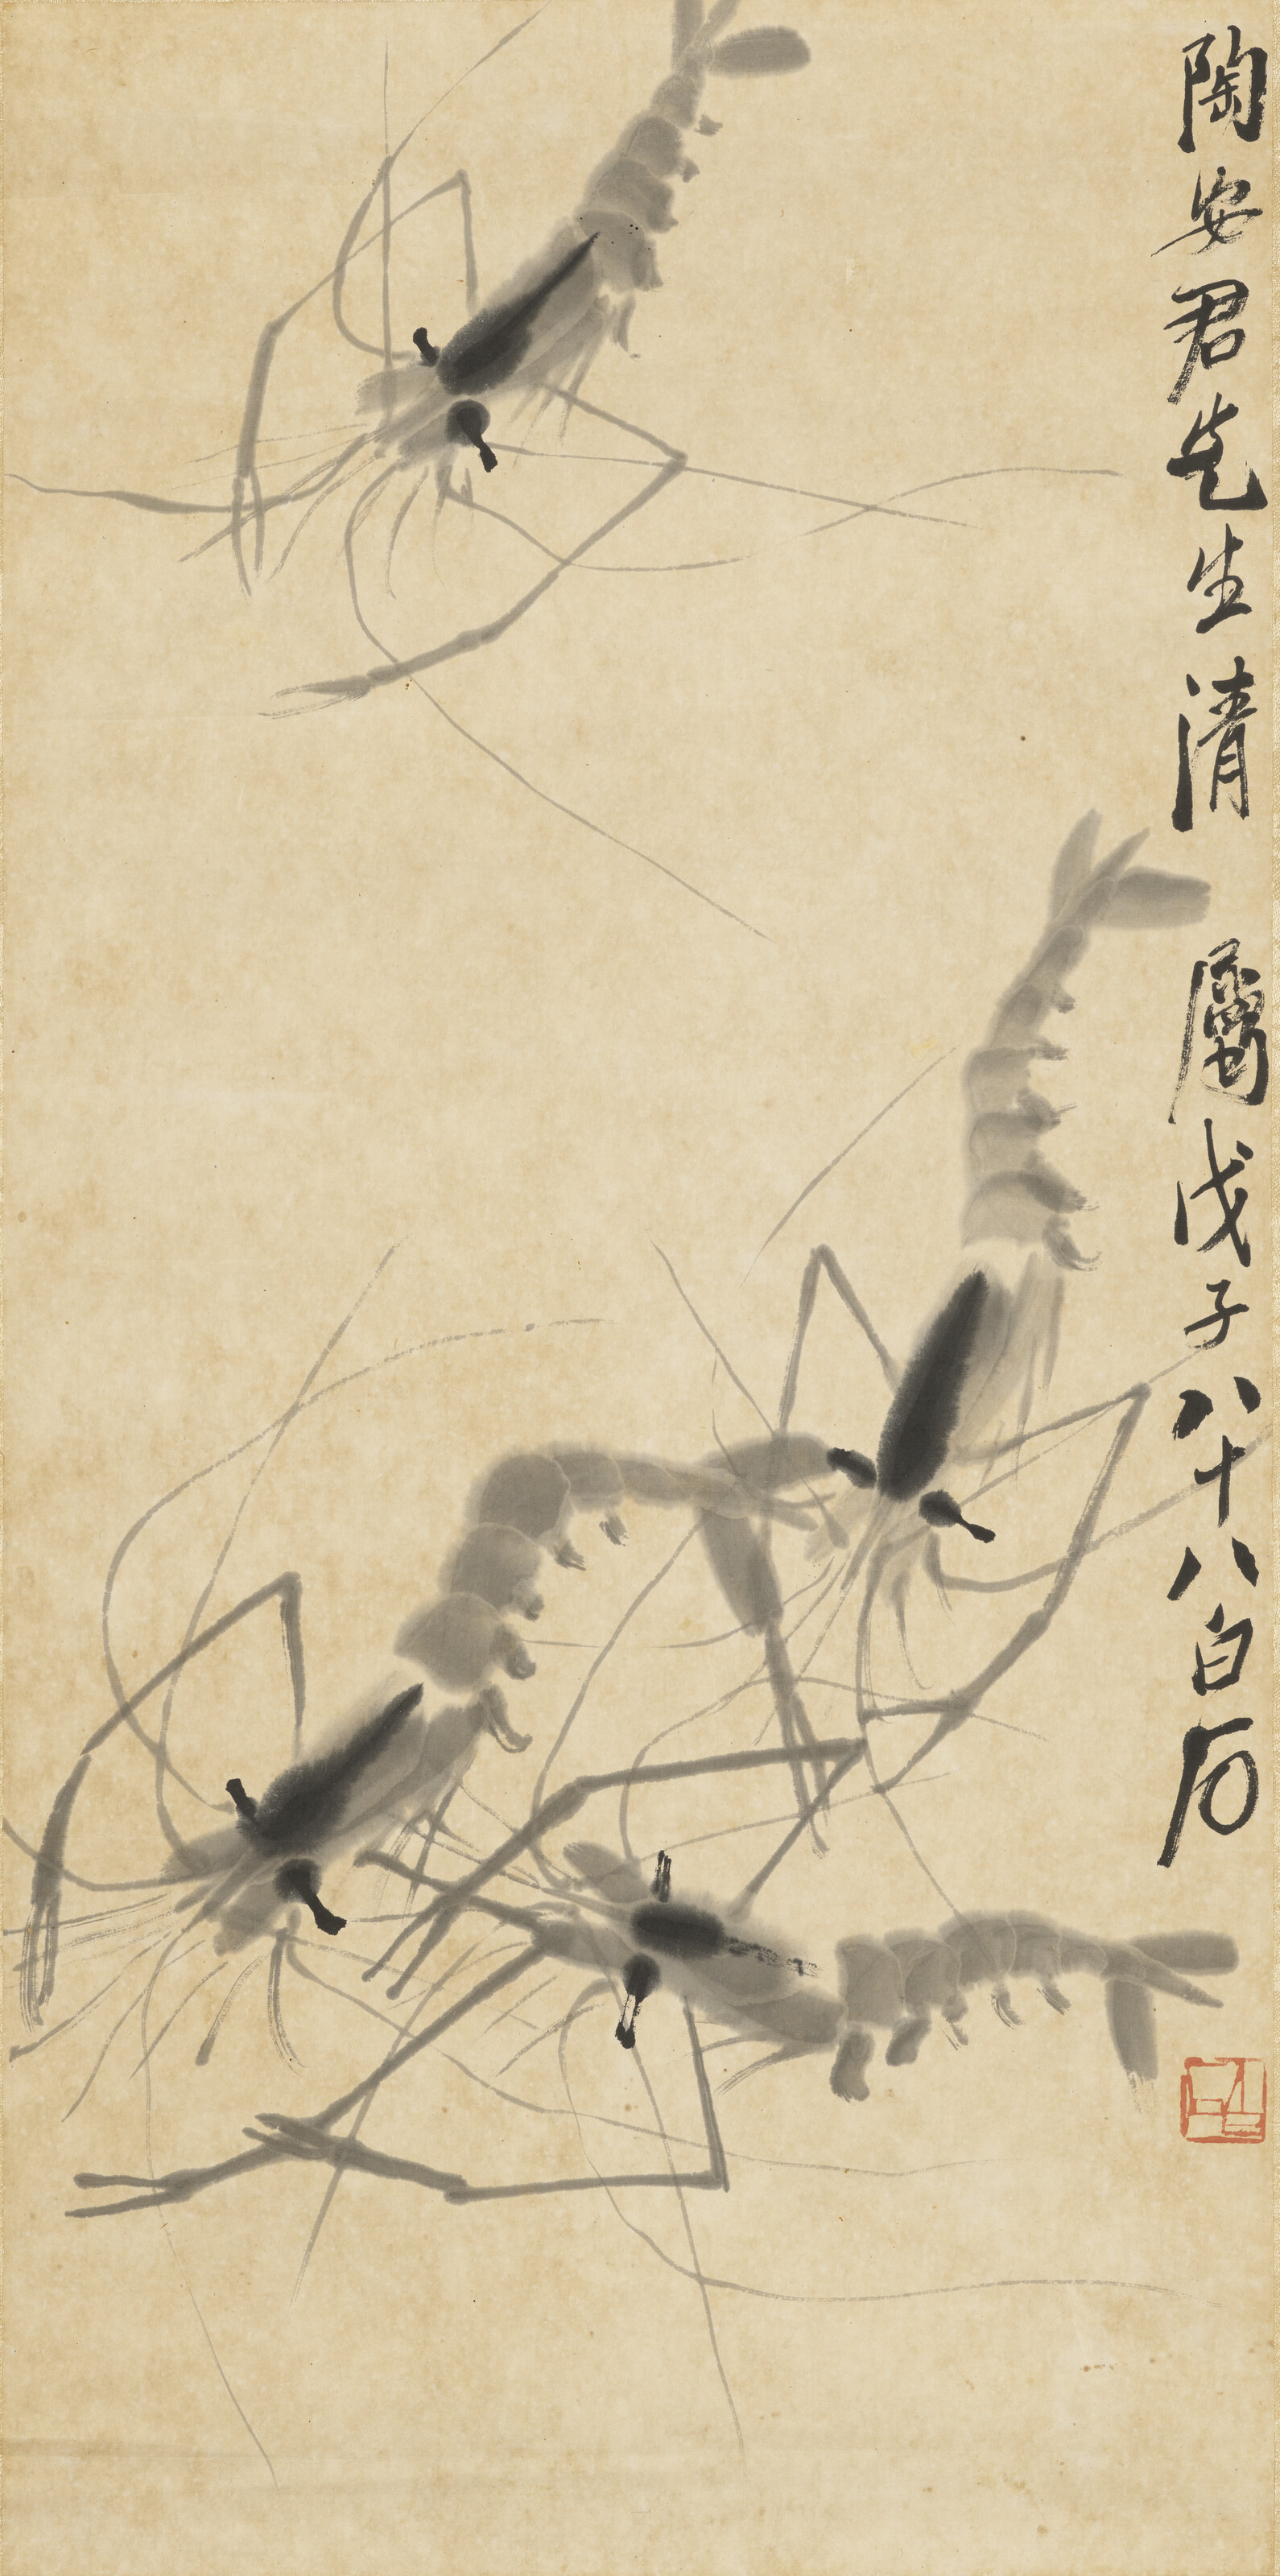 陶安君先生清 屬戊子八十八白石